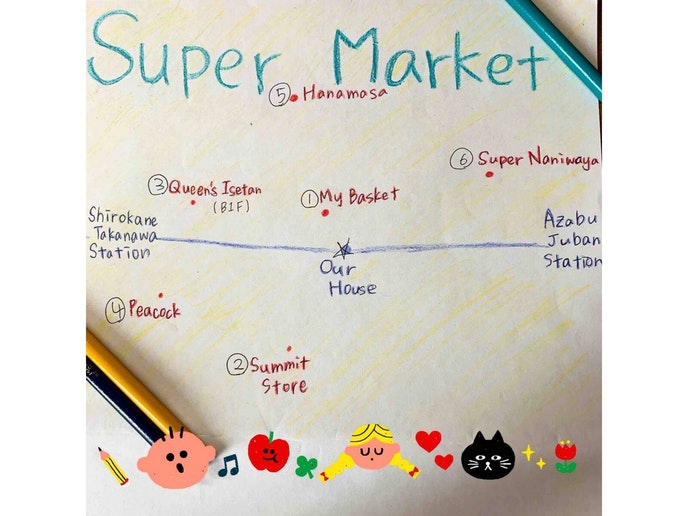 Super Market
⑤ Hanamasa
⑥ Super Naniwaya
③ Queen's Isetan
(B1F)
① My Basket
Shirokane
Takanawa
Station
Azabu
Juban
Station
Our
House
④ Peacock
② Summit
Store